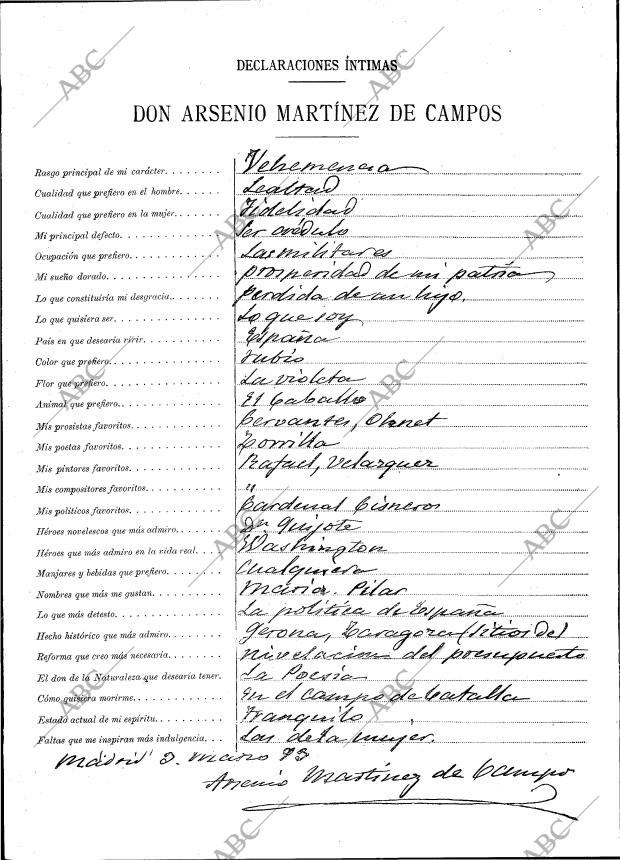 DECLARACIONES ÍNTIMAS
DON ARSENIO MARTÍNEZ DE CAMPOS
Rasgo principal de mi carácter. . . . . . . . Vehemencia
Cualidad que prefiero en el hombre. . . . . . . Lealtad
Cualidad que prefiero en la mujer. . . . . . . . Fidelidad
Mi principal defecto. . . . . . . . . . . . . Ser crédulo
Ocupación que prefiero. . . . . . . . . . . . Las militares
Mi sueño dorado. . . . . . . . . . . . . . prosperidad de mi patria
Lo que constituiría mi desgracia. . . . . . . . perdida de un hijo.
Lo que quisiera ser. . . . . . . . . . . . . Lo que soy
País en que desearía vivir. . . . . . . . . . . España
Color que prefiero. . . . . . . . . . . . . rubio
Flor que prefiero. . . . . . . . . . . . . . La violeta
Animal que prefiero. . . . . . . . . . . . . El Caballo
Mis prosistas favoritos. . . . . . . . . . . . Cervantes, Ohnet
Mis poetas favoritos. . . . . . . . . . . . . Zorrilla
Mis pintores favoritos. . . . . . . . . . . . Rafael, Velazquez
Mis compositores favoritos. . . . . . . . . . "
Mis políticos favoritos. . . . . . . . . . . . Cardenal Cisneros
Héroes novelescos que más admiro. . . . . . . Dn Quijote
Héroes que más admiro en la vida real. . . . . Washington
Manjares y bebidas que prefiero. . . . . . . . Cualquiera
Nombres que más me gustan. . . . . . . . . . Maria. Pilar
Lo que más detesto. . . . . . . . . . . . . La politica de España
Hecho histórico que más admiro. . . . . . . . Gerona, Zaragoza (sitios de)
Reforma que creo más necesaria. . . . . . . . nivelacion del presupuesto
El don de la Naturaleza que desearía tener. La Poesia
Cómo quisiera morirme. . . . . . . . . . . . En el campo de batalla
Estado actual de mi espíritu. . . . . . . . . . Tranquilo
Faltas que me inspiran más indulgencia. . . . Las de la mujer.
Madrid Marzo 93
Arsenio Martínez de Campo
ABC
ABC
ABC
ABC
ABC
ABC
ABC
ABC
ABC
ABC
ABC
ABC
ABC